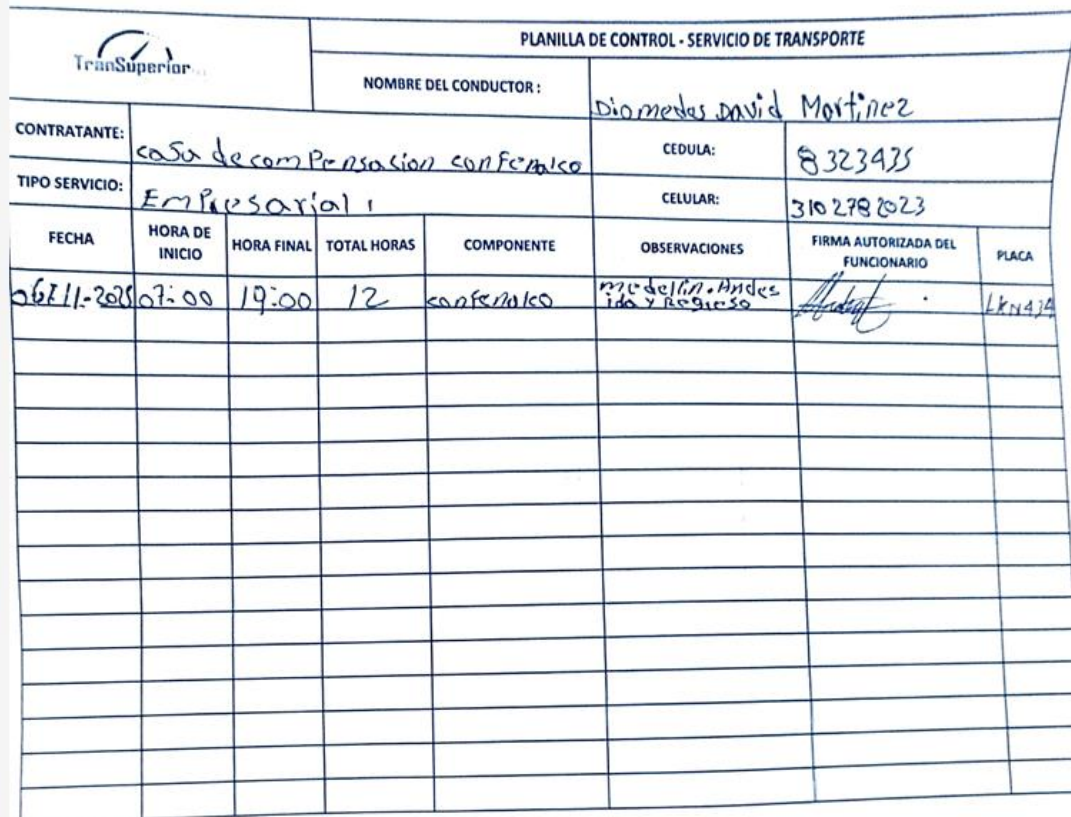 TranSuperior
PLANILLA DE CONTROL - SERVICIO DE TRANSPORTE
NOMBRE DEL CONDUCTOR :
Diomedes David Martinez
CONTRATANTE:
casa de compensacion confenalco
CEDULA:
8323435
TIPO SERVICIO:
Empresarial
CELULAR:
3102782023
FECHA
HORA DE INICIO
HORA FINAL
TOTAL HORAS
COMPONENTE
OBSERVACIONES
FIRMA AUTORIZADA DEL FUNCIONARIO
PLACA
07:00
19:00
12
confenalco
medellin-Andes
ida y Regreso